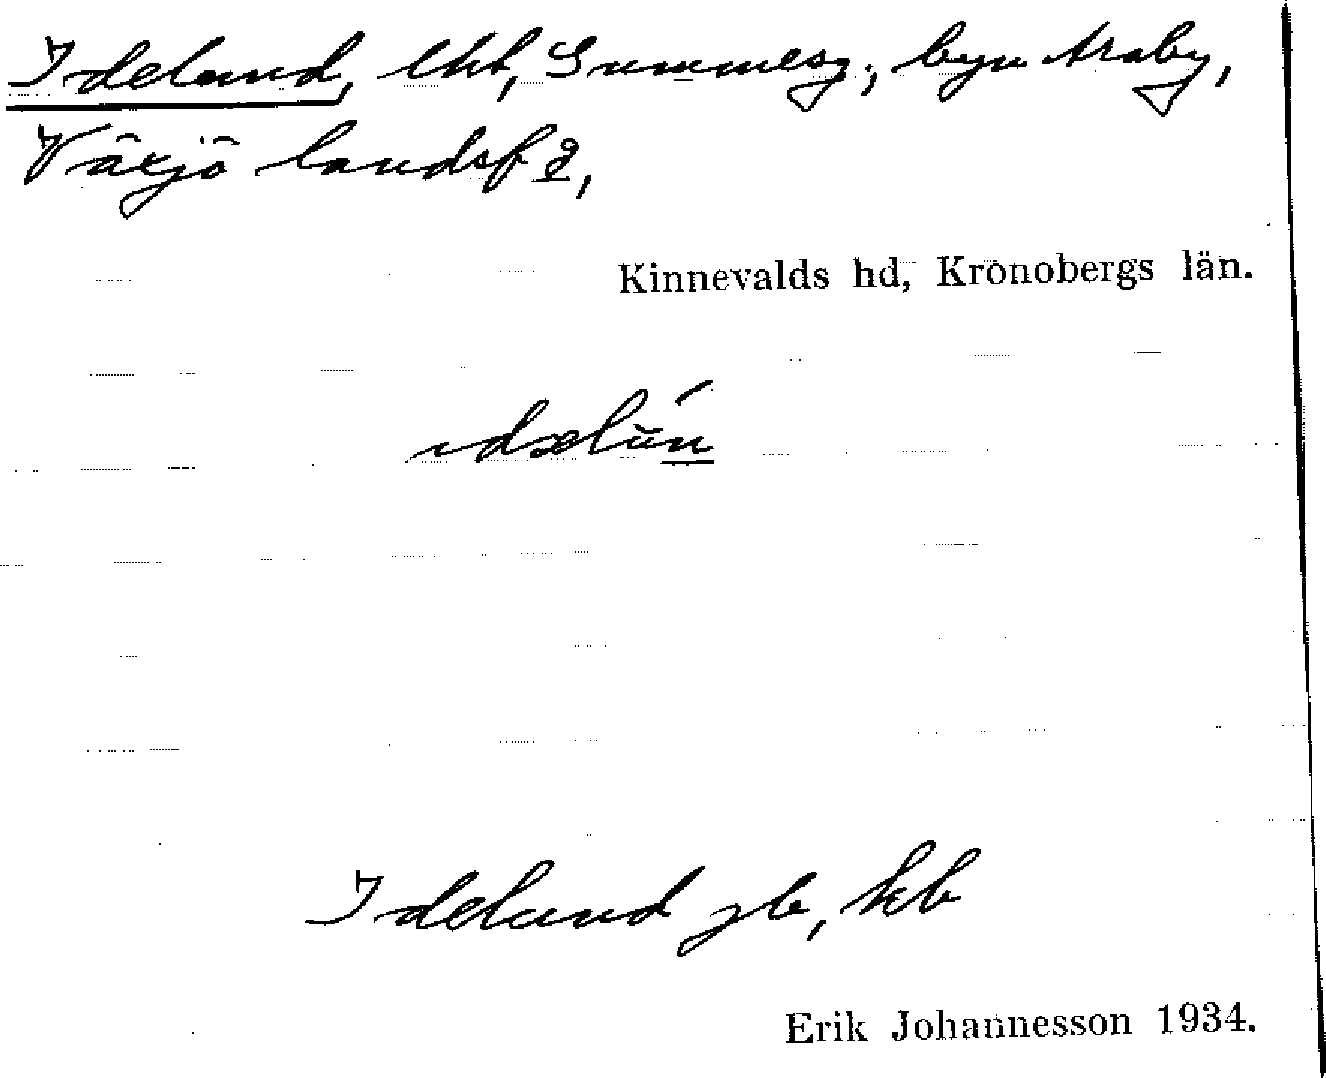 Ideland, lht, Summesg., byn Araby,
Växjö landsf,
Kinnevalds hd, Kronobergs län.
idəlún
Ideland jb, kb
Erik Johannesson 1934.